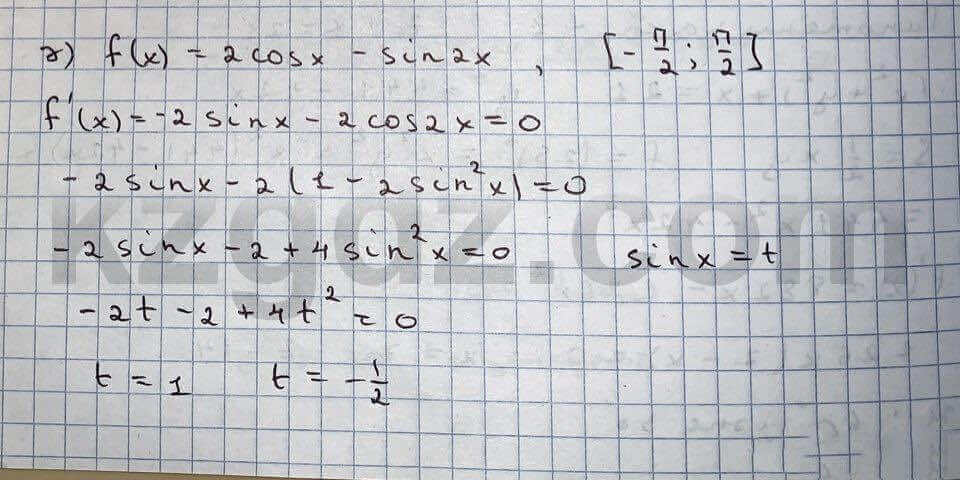 г) f(x) = 2cosx - sin2x, [-π/2; π/2]
f'(x) = -2sinx - 2cos2x = 0
-2sinx - 2(1 - 2sin²x) = 0
-2sinx - 2 + 4sin²x = 0 sinx = t
-2t - 2 + 4t² = 0
t = 1 t = -1/2
kzgdz.com